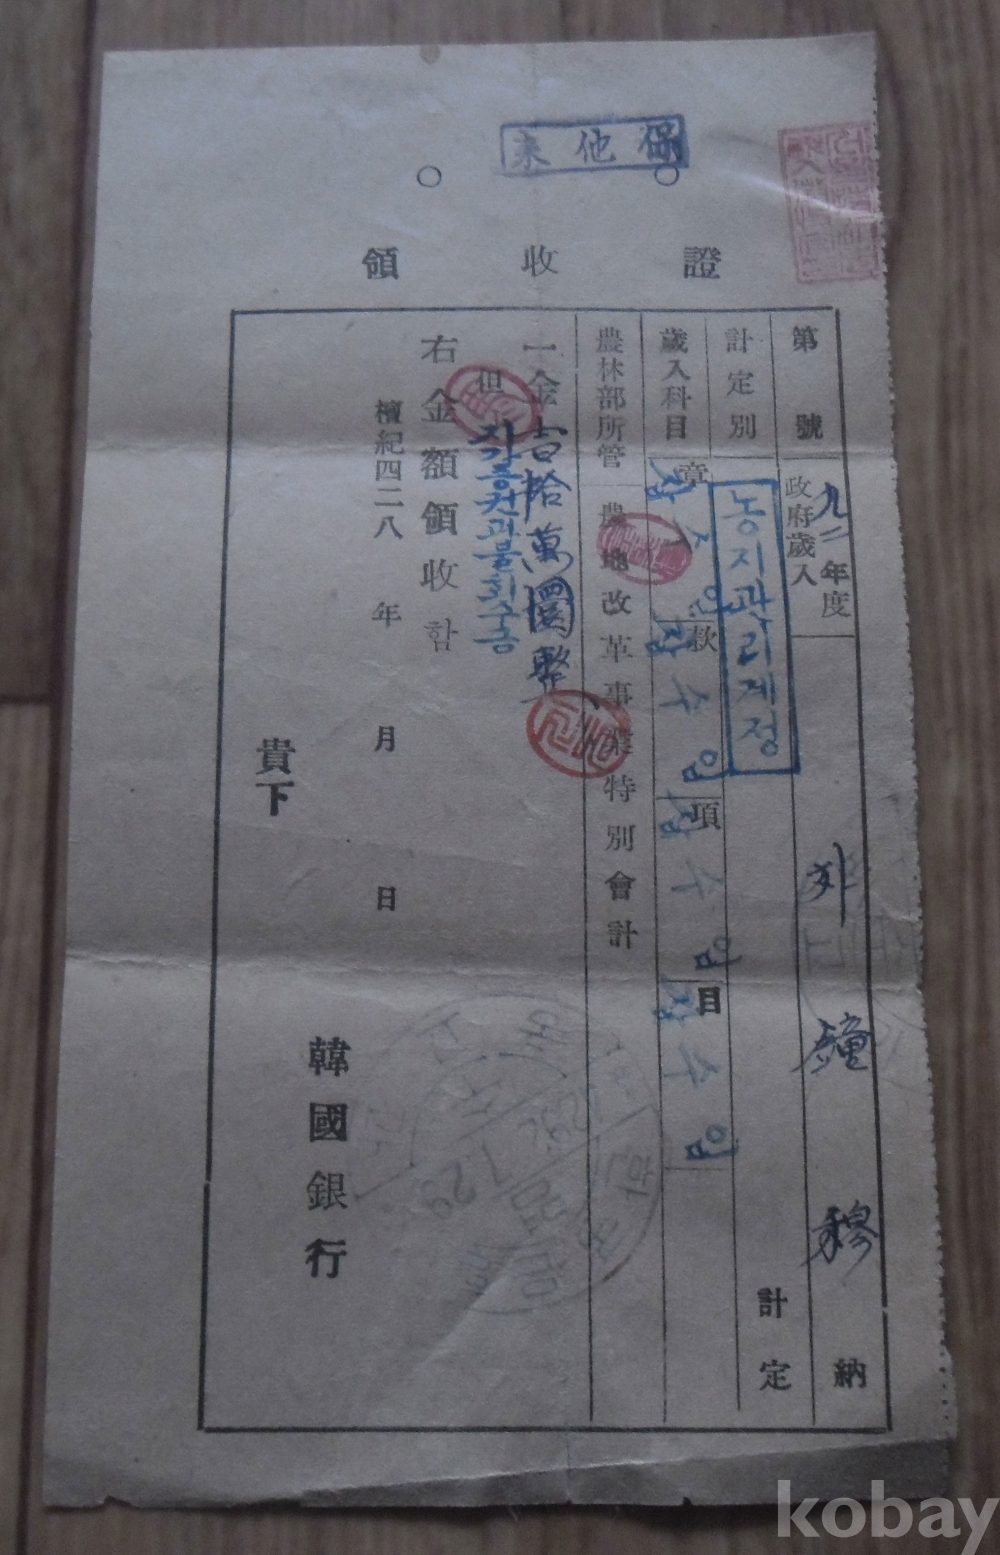 保他来
領收證
第 號
九二年度
政府歲入
外鐘穆 納
計定別
농지관리계정
計定
歲入科目
章 잡수입 款 잡수입 項 잡수입 目 잡수입
農林部所管
農地改革事業特別會計
一金 壱拾萬圜整
但 지불원과불회수금
右金額領收함
檀紀四二八 年 月 日
韓國銀行
貴下
kobay